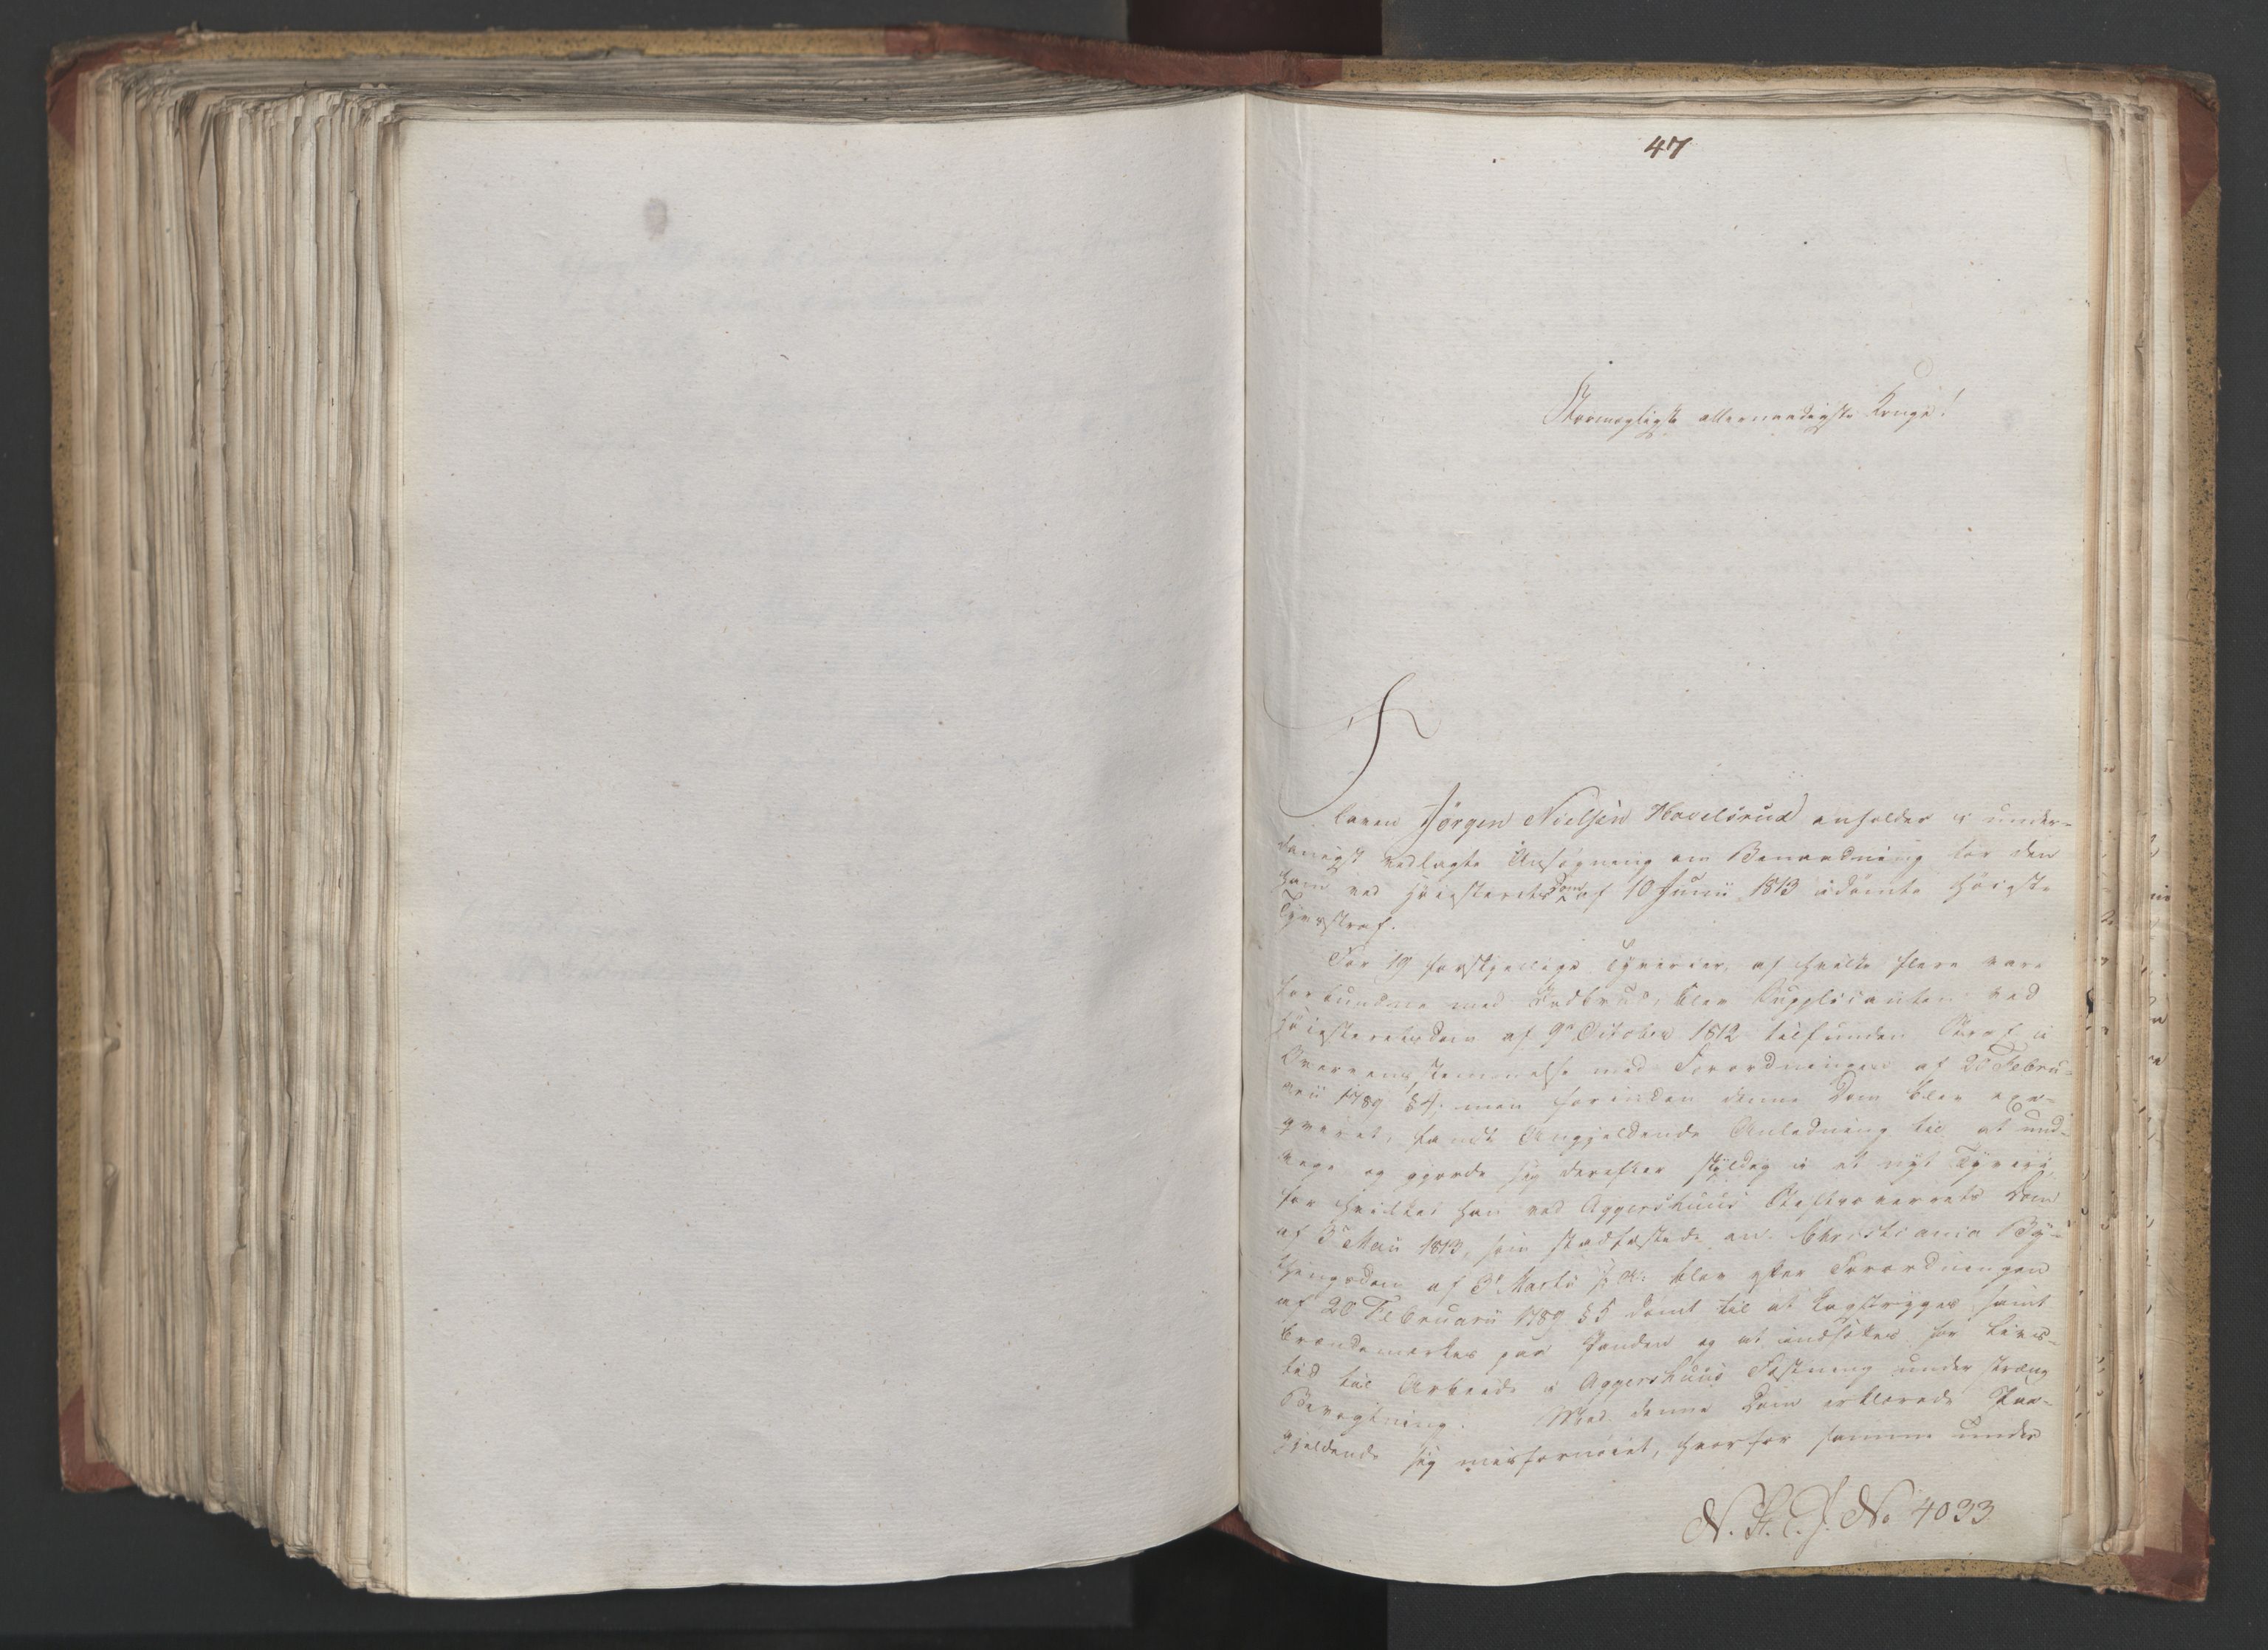 47
Stormægtigste allernaadigste Konge!
Slaven Jörgen Nielsen Hovelsrud anholder i under-
danigst vedlagte Ansøgning om Benaadning for den
ham ved Høiesterets Dom af 10 Junii 1813 idömte höieste
Tyvsstraf.
For 19 forskjellige Tyverier, af hvilke flere vare
forbundne med Indbrud, blev Supplicanten ved
Høiesteretsdom af 9de October 1812 tilfunden Straf i
Overeensstemmelse med Forordningen af 20 Febru-
arii 1789 § 4. men forinden denne Dom blev exe-
qveret, fandt Angjeldende Anledning til at und-
vige og gjorde sig derefter skyldig i et nyt Tyverie,
for hvilket han ved Aggershuus Stiftsoverrets Dom
af 3 Maii 1813, som stadfæstede en Christiania Bye-
thingsdom af 31 Martii s. A. blev efter Forordningen
af 20 Februarii 1789 § 5 dömt til at kagstryges samt
brændemærkes paa Panden og at indsættes for Livs-
tid til Arbeide i Aggershuus Fæstning under streng
Bevogtning. Med denne Dom erklærede Paa-
gjeldende sig misfornöiet, hvorfor samme under
N. H. C. J. No 4033